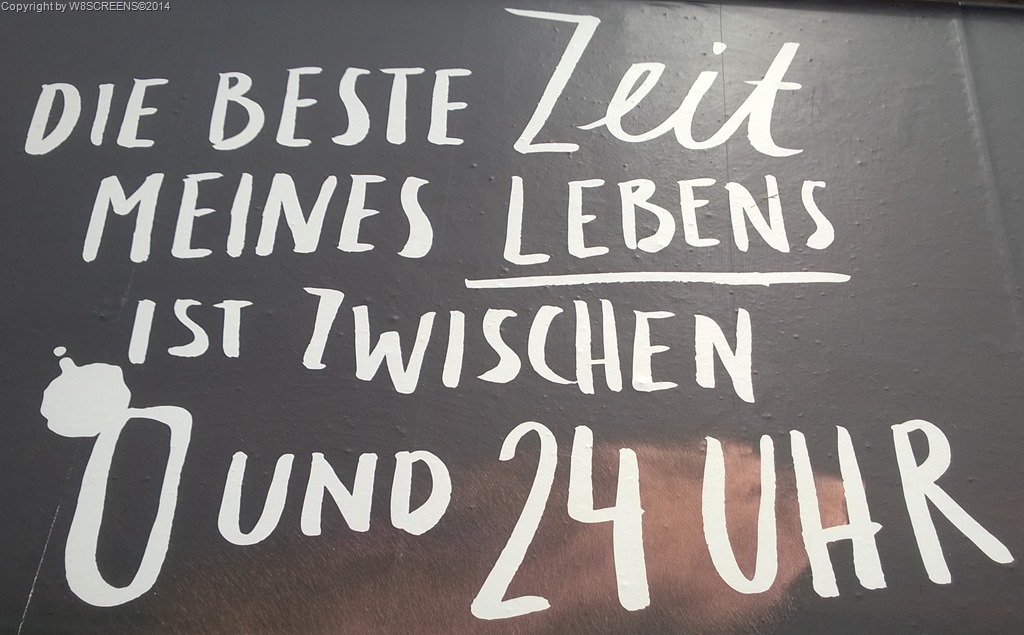 Copyright by W8SCREENS©2014
DIE BESTE Zeit
MEINES LEBENS
IST ZWISCHEN
0 UND 24 UHR